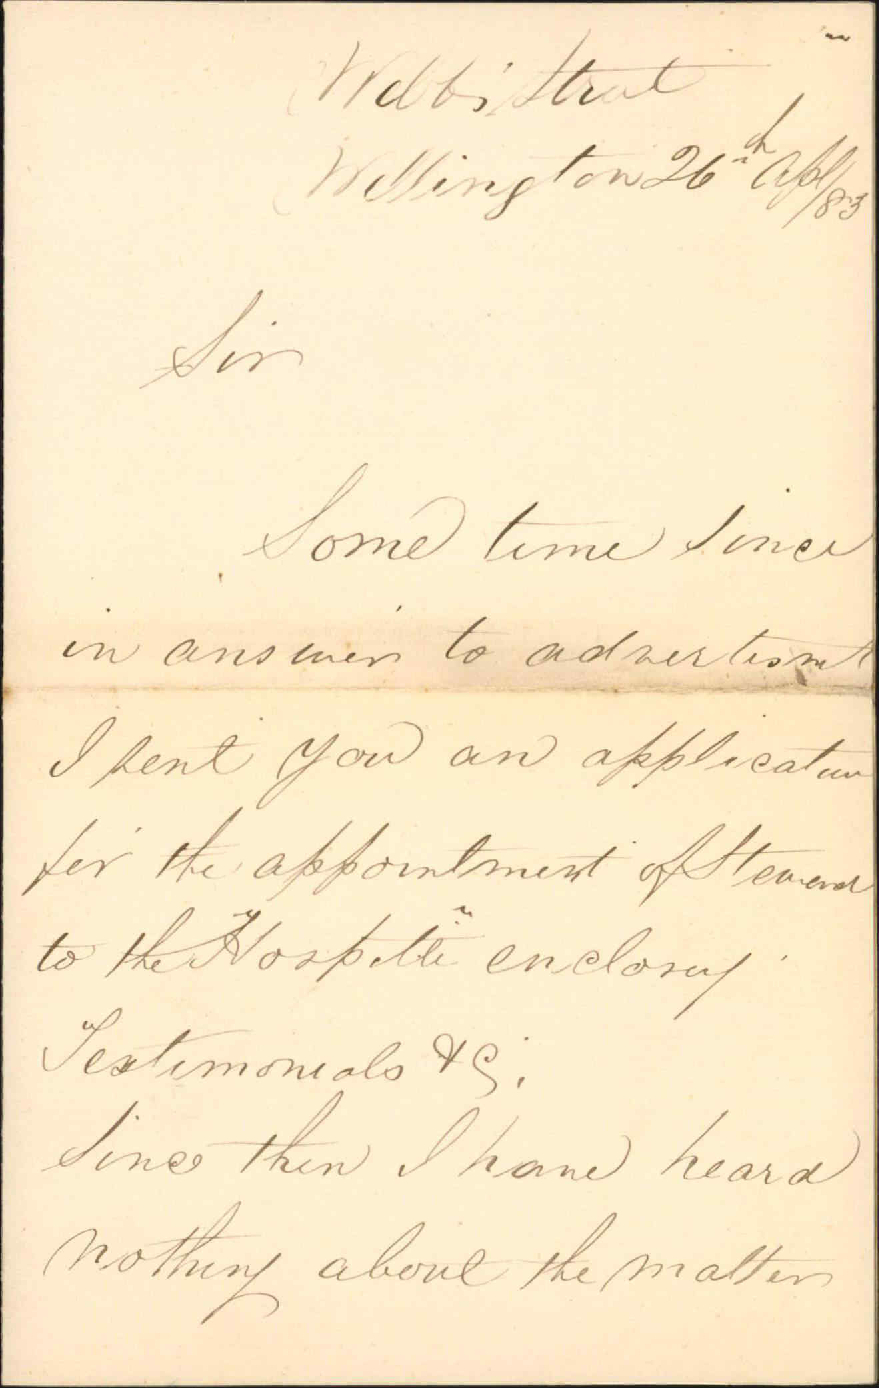 Webb's Street
Wellington 26th Apl/83
Sir
Some time since
in answer to advertismt
I sent you an application
for the appointment of Steward
to the Hospital enclosing
Testimonials &c.
Since then I have heard
nothing about the matter